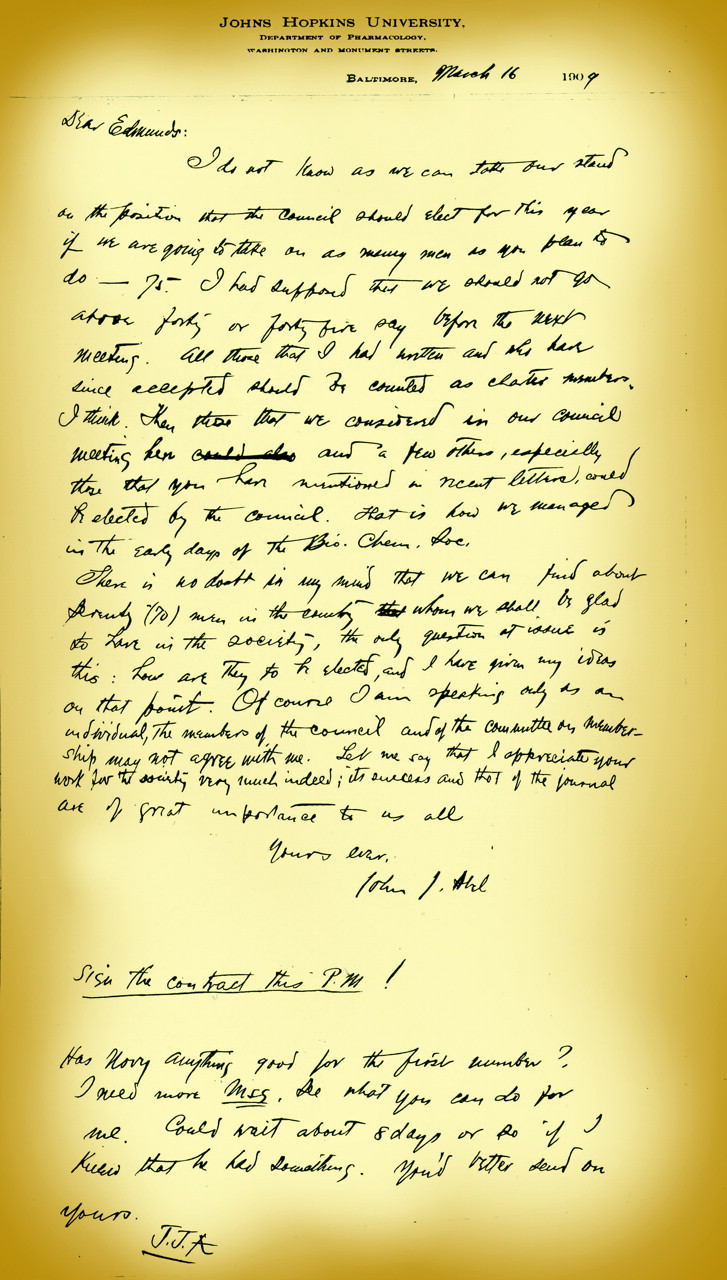 JOHNS HOPKINS UNIVERSITY,
DEPARTMENT OF PHARMACOLOGY,
WASHINGTON AND MONUMENT STREETS.
BALTIMORE, March 16 1909
Dear Edmunds:
I do not know as we can take our stand
on the position that the council should elect for this year
if we are going to take on as many men as you plan to
do — 75. I had supposed that we should not go
above forty or forty five say before the next
meeting. All those that I had written and who have
since accepted should be counted as charter members,
I think. Then those that we considered in our council
meeting here could also and a few others, especially
those that you have mentioned in recent letters, could
be elected by the council. That is how we managed
in the early days of the Bio. Chem. Soc.
There is no doubt in my mind that we can find about
seventy (70) men in the country that whom we shall be glad
to have in the society, the only question at issue is
this: how are they to be elected, and I have given my ideas
on that point. Of course I am speaking only as an
individual, the members of the council and of the committee on member-
ship may not agree with me. Let me say that I appreciate your
work for the society very much indeed; its success and that of the journal
are of great importance to us all
Yours ever,
John J. Abel
Sign the contract this P.M!
Has Novy anything good for the first number?
I need more Mss. See what you can do for
me. Could wait about 8 days or so if I
knew that he had something. You'd better send on
yours.
J.J.A